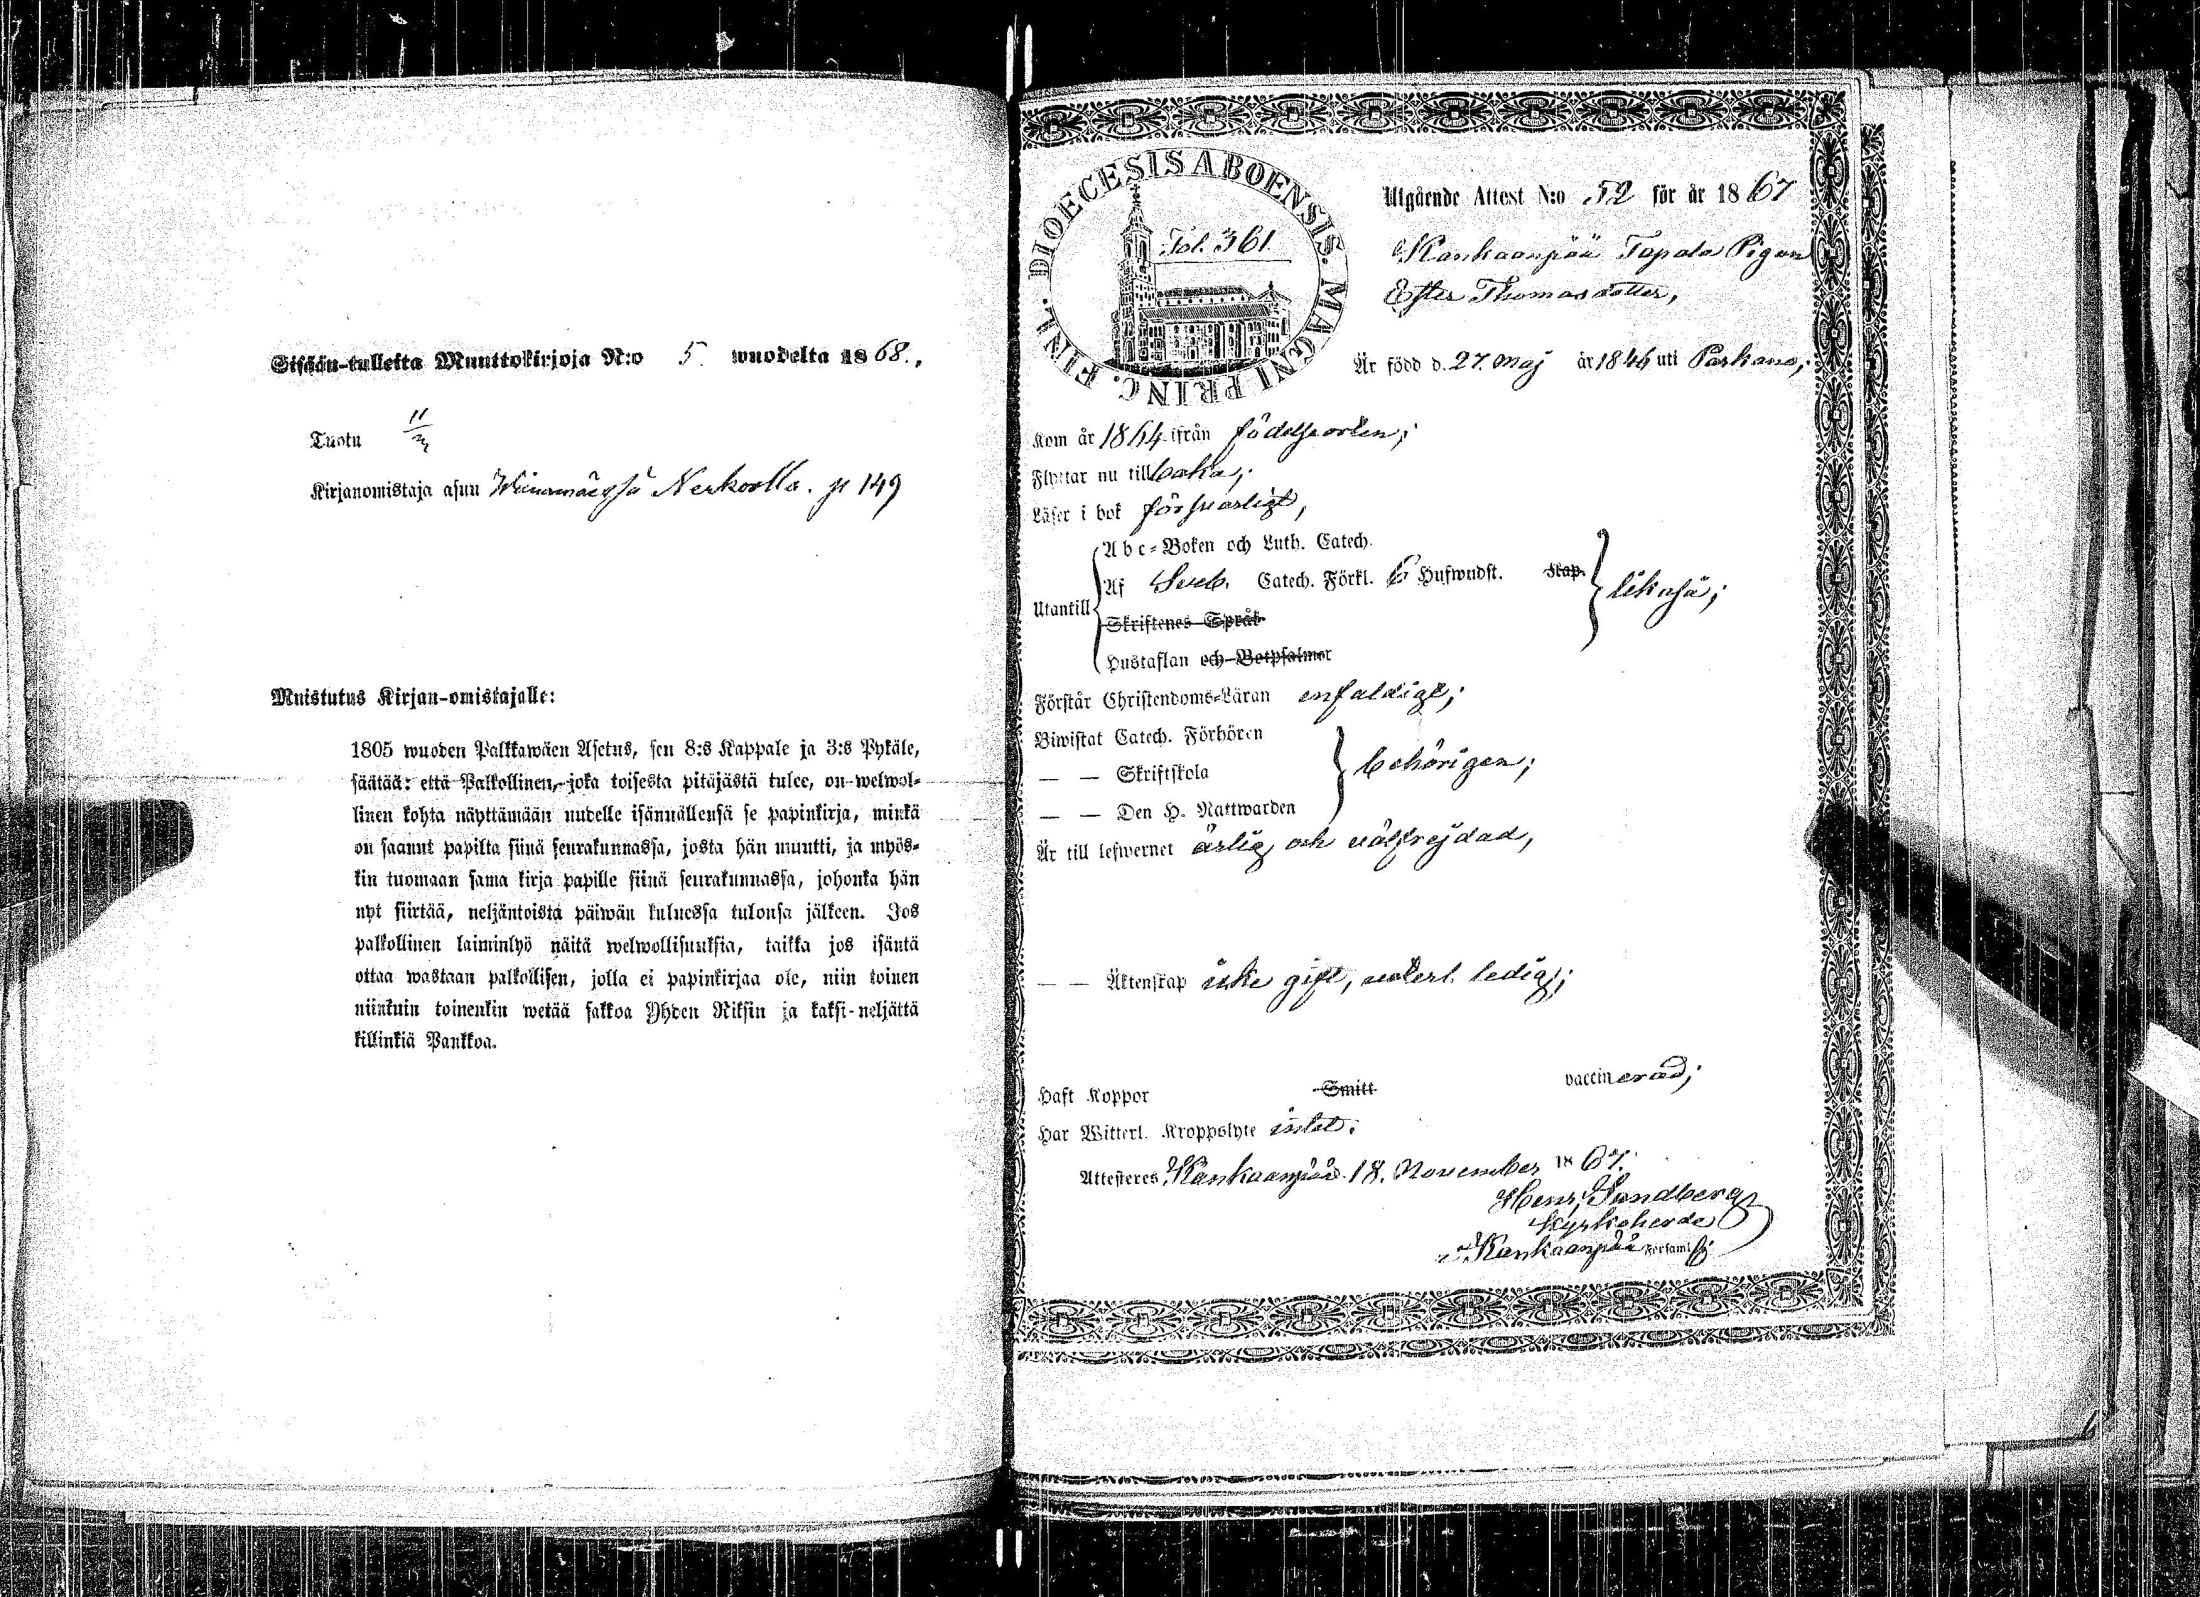 Sisään-tulleita Muuttokirjoja N:o 5. wuodelta 1868.,
Tuotu 11/2
Kirjanomistaja asuu Nerkoolla. p 149
Muistutus Kirjan-omistajalle:
1805 wuoden Palkkawäen Asetus, sen 8:s Kappale ja 3:s Pykäle,
säätää: että Palkollinen, joka toisesta pitäjästä tulee, on welwol-
linen kohta näyttämään uudelle isännällensä se papinkirja, minkä
on saanut papilta siinä seurakunnassa, josta hän muutti, ja myös-
kin tuomaan sama kirja papille siinä seurakunnassa, johonka hän
nyt siirtää, neljäntoista päiwän kuluessa tulonsa jälkeen. Jos
palkollinen laiminlyö näitä welwollisuuksia, taikka jos isäntä
ottaa wastaan palkollisen, jolla ei papinkirjaa ole, niin toinen
niinkuin toinenkin wetää sakkoa Yhden Riksin ja kaksi-neljättä
killinkiä Pankkoa.
DIOECESIS ABOENSIS. MAGNI PRINC. FINL.
Fol. 361
Utgående Attest N:o 52 för år 1867
Kankaanpää Tapala Pigan
Ester Thomasdotter,
Är född d. 27. Maj år 1846 uti Parkano,
Kom år 1864 ifrån födelseorten;
Flyttar nu tillbaka;
Läser i bok försvarligt,
Abc-Boken och Luth. Catech.
Utantill Af Sveb. Catech. Förkl. 6 Hufwudst. Kap. likaså;
Skriftenes Språk
Hustaflan och Botpsalmer
Förstår Christendoms-Läran enfaldigt;
Biwistat Catech. Förhören
— — Skriftskola behörigen;
— — Den H. Nattwarden
Är till lefwernet ärlig och välfrejdad,
— — Äktenskap icke gift, veterl. ledig;
Haft Koppor Smitt vaccinerad;
Har Witterl. Kroppslyte intet.
Attesteres Kankaanpää 18. November 1867.
Henr. Sundberg
Kyrkoherde
i Kankaanpää Församl.